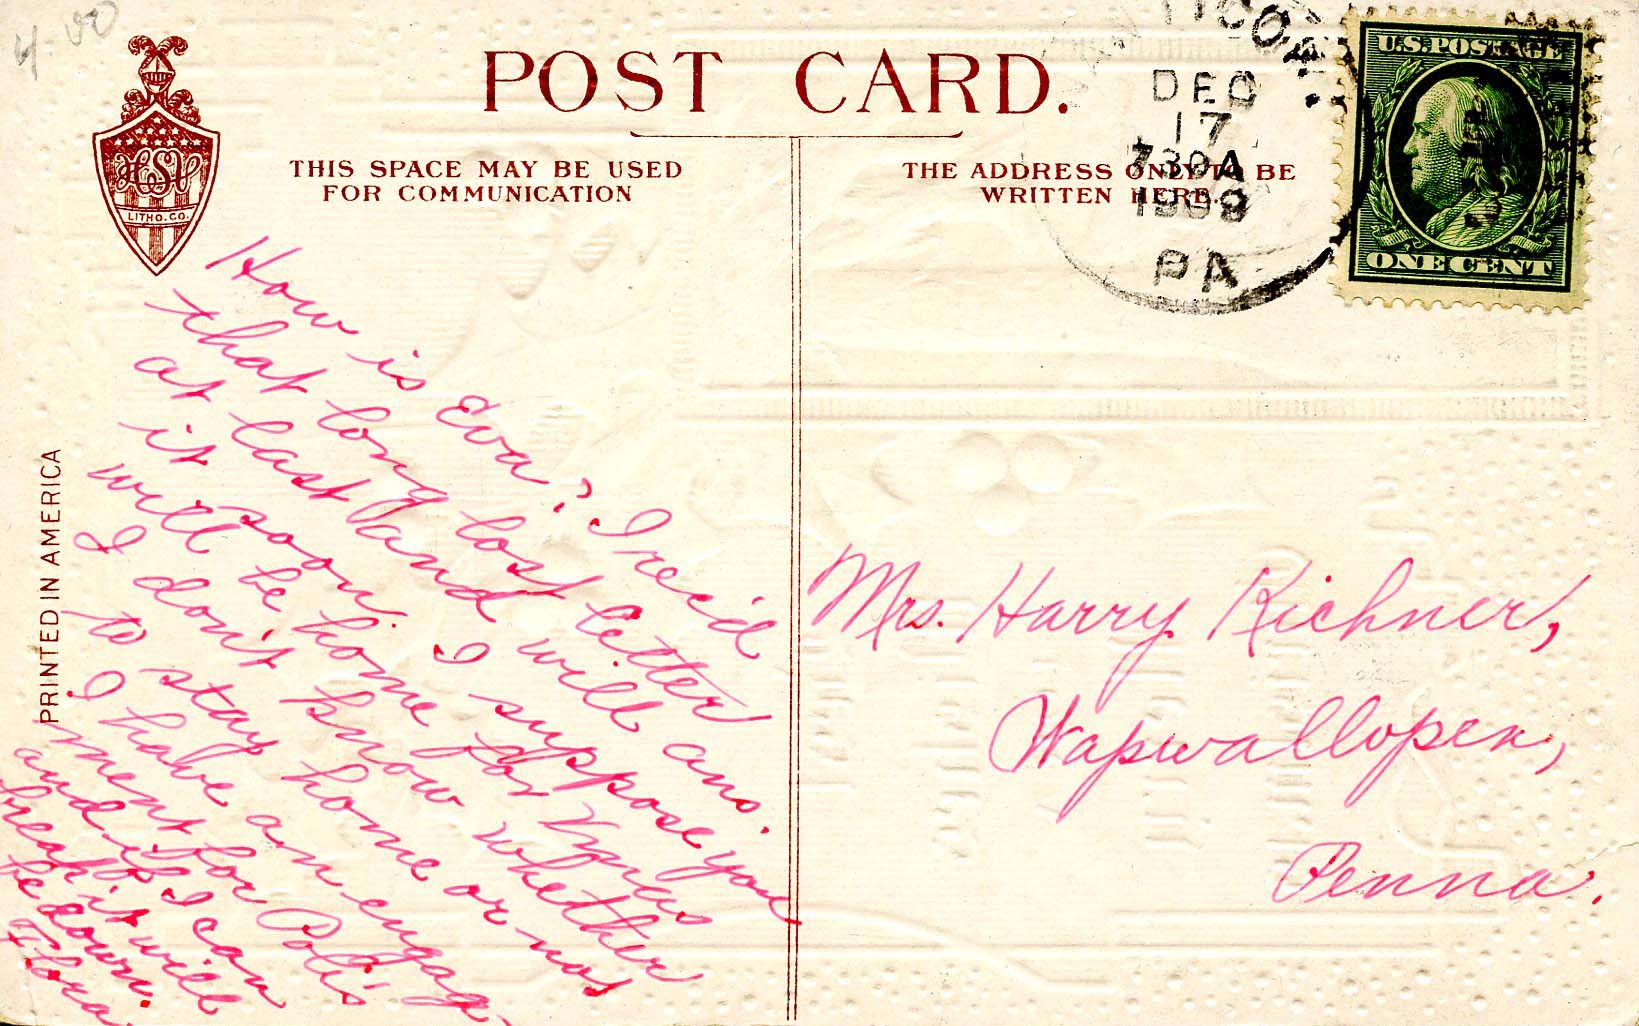 4.00
POST CARD.
THIS SPACE MAY BE USED
FOR COMMUNICATION
THE ADDRESS ONLY TO BE
WRITTEN HERE.
LITHO. CO.
PRINTED IN AMERICA
DEC
17
730A
PA
U.S. POSTAGE
ONE CENT
How is Eva? I rec'd
that long lost letter
at last and will ans.
it soon. I suppose you
will be home for Xmas
I don't know whether
to stay home or not
I have an engage
ment for Poli's
and if I can
break it will
be down.
Flora
Mrs. Harry Kichner,
Wapwallopen,
Penna.